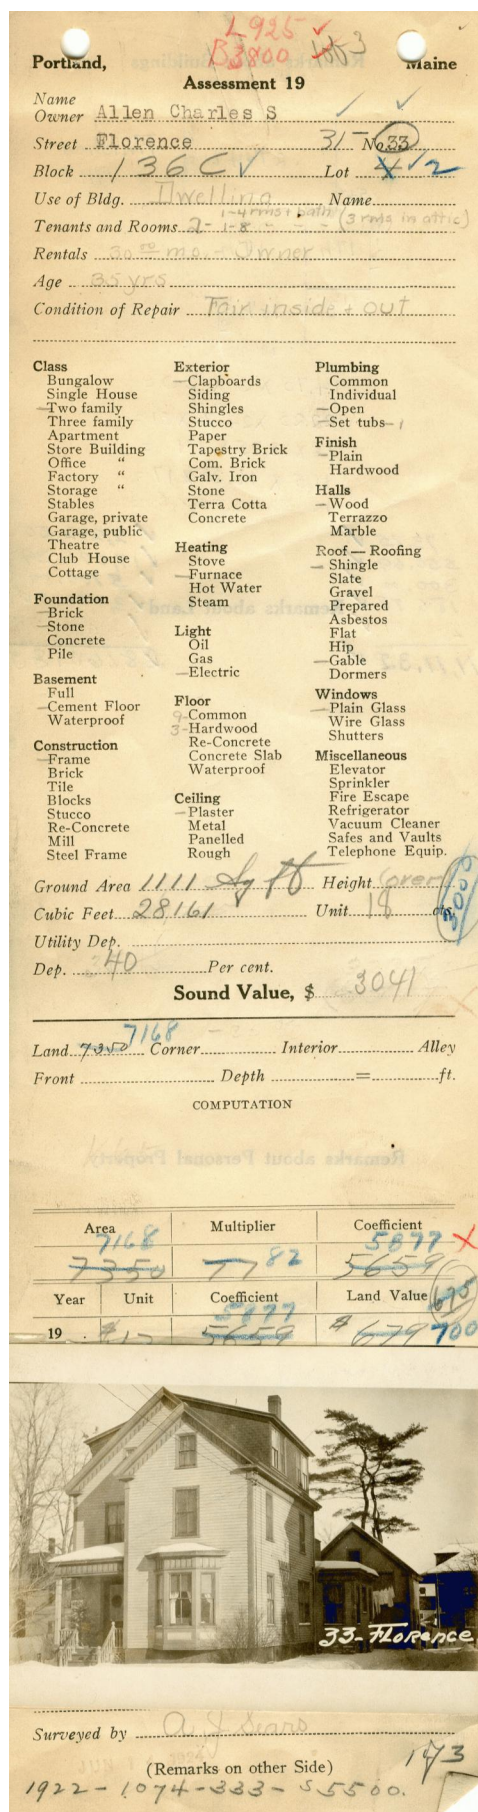 L 925 ✓
B 3800 ✓ Lot 3
Portland, Maine
Assessment 19
Name
Owner Allen Charles S
Street Florence 31- No. 33
Block 136 C ✓ Lot 4 ✓ 2
Use of Bldg. Dwelling Name
Tenants and Rooms 2- 1-4 rms + bath
1-8 - - - (3 rms in attic)
Rentals 30 00 mo. - Owner
Age 35 yrs
Condition of Repair Fair inside + out
Class
Bungalow
Single House
Two family
Three family
Apartment
Store Building
Office "
Factory "
Storage "
Stables
Garage, private
Garage, public
Theatre
Club House
Cottage
Foundation
Brick
Stone
Concrete
Pile
Basement
Full
Cement Floor
Waterproof
Construction
Frame
Brick
Tile
Blocks
Stucco
Re-Concrete
Mill
Steel Frame
Exterior
Clapboards
Siding
Shingles
Stucco
Paper
Tapestry Brick
Com. Brick
Galv. Iron
Stone
Terra Cotta
Concrete
Heating
Stove
Furnace
Hot Water
Steam
Light
Oil
Gas
Electric
Floor
9-Common
3-Hardwood
Re-Concrete
Concrete Slab
Waterproof
Ceiling
Plaster
Metal
Panelled
Rough
Plumbing
Common
Individual
Open
Set tubs-1
Finish
Plain
Hardwood
Halls
Wood
Terrazzo
Marble
Roof — Roofing
Shingle
Slate
Gravel
Prepared
Asbestos
Flat
Hip
Gable
Dormers
Windows
Plain Glass
Wire Glass
Shutters
Miscellaneous
Elevator
Sprinkler
Fire Escape
Refrigerator
Vacuum Cleaner
Safes and Vaults
Telephone Equip.
Ground Area 1111 Sq ft Height (over)
Cubic Feet 28161 Unit 18 cts. 3000
Utility Dep.
Dep. 40 Per cent.
Sound Value, $ 3041
7168
Land 7350 Corner Interior Alley
Front Depth = ft.
COMPUTATION
Remarks about Personal Property
Area Multiplier Coefficient
7168 5877
7350 77 82 5659
Year Unit Coefficient Land Value 675
5877
19 $12 5659 $679 700
33-Florence
Surveyed by A J Sears
(Remarks on other Side) 173
1922 - 1074 - 333 - $5500.